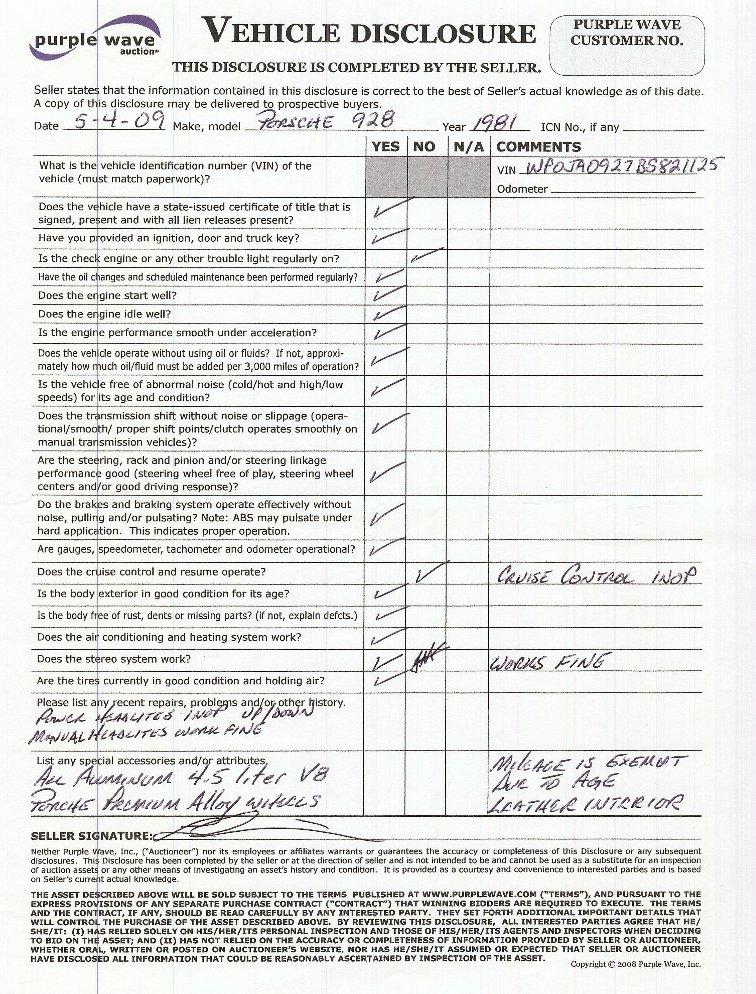 purple wave
auction
VEHICLE DISCLOSURE
PURPLE WAVE
CUSTOMER NO.
THIS DISCLOSURE IS COMPLETED BY THE SELLER.
Seller states that the information contained in this disclosure is correct to the best of Seller's actual knowledge as of this date.
A copy of this disclosure may be delivered to prospective buyers.
Date 5-4-09 Make, model PORSCHE 928 Year 1981 ICN No., if any
YES NO N/A COMMENTS
What is the vehicle identification number (VIN) of the
vehicle (must match paperwork)?
VIN WPOJA0927BS821125
Odometer
Does the vehicle have a state-issued certificate of title that is
signed, present and with all lien releases present?
Have you provided an ignition, door and truck key?
Is the check engine or any other trouble light regularly on?
Have the oil changes and scheduled maintenance been performed regularly?
Does the engine start well?
Does the engine idle well?
Is the engine performance smooth under acceleration?
Does the vehicle operate without using oil or fluids? If not, approxi-
mately how much oil/fluid must be added per 3,000 miles of operation?
Is the vehicle free of abnormal noise (cold/hot and high/low
speeds) for its age and condition?
Does the transmission shift without noise or slippage (opera-
tional/smooth/ proper shift points/clutch operates smoothly on
manual transmission vehicles)?
Are the steering, rack and pinion and/or steering linkage
performance good (steering wheel free of play, steering wheel
centers and/or good driving response)?
Do the brakes and braking system operate effectively without
noise, pulling and/or pulsating? Note: ABS may pulsate under
hard application. This indicates proper operation.
Are gauges, speedometer, tachometer and odometer operational?
Does the cruise control and resume operate? CRUISE CONTROL INOP
Is the body exterior in good condition for its age?
Is the body free of rust, dents or missing parts? (if not, explain defcts.)
Does the air conditioning and heating system work?
Does the stereo system work? WORKS FING
Are the tires currently in good condition and holding air?
Please list any recent repairs, problems and/or other history.
POWER HEADLITES INOP UP/DOWN
MANUAL HEADLITES WORK FING
List any special accessories and/or attributes.
ALL ALUMINUM 4.5 liter V8
PORCHE PREMIUM Alloy WHEELS
MILEAGE IS EXEMPT
DUE TO AGE
LEATHER INTERIOR
SELLER SIGNATURE:
Neither Purple Wave, Inc., ("Auctioneer") nor its employees or affiliates warrants or guarantees the accuracy or completeness of this Disclosure or any subsequent
disclosures. This Disclosure has been completed by the seller or at the direction of seller and is not intended to and cannot be used as a substitute for an inspection
of auction assets or any other means of investigating an asset's history and condition. It is provided as a courtesy and convenience to interested parties and is based
on Seller's current actual knowledge.
THE ASSET DESCRIBED ABOVE WILL BE SOLD SUBJECT TO THE TERMS PUBLISHED AT WWW.PURPLEWAVE.COM ("TERMS"), AND PURSUANT TO THE
EXPRESS PROVISIONS OF ANY SEPARATE PURCHASE CONTRACT ("CONTRACT") THAT WINNING BIDDERS ARE REQUIRED TO EXECUTE. THE TERMS
AND THE CONTRACT, IF ANY, SHOULD BE READ CAREFULLY BY ANY INTERESTED PARTY. THEY SET FORTH ADDITIONAL IMPORTANT DETAILS THAT
WILL CONTROL THE PURCHASE OF THE ASSET DESCRIBED ABOVE. BY REVIEWING THIS DISCLOSURE, ALL INTERESTED PARTIES AGREE THAT HE/
SHE/IT: (I) HAS RELIED SOLELY ON HIS/HER/ITS PERSONAL INSPECTION AND THOSE OF HIS/HER/ITS AGENTS AND INSPECTORS WHEN DECIDING
TO BID ON THE ASSET; AND (II) HAS NOT RELIED ON THE ACCURACY OR COMPLETENESS OF INFORMATION PROVIDED BY SELLER OR AUCTIONEER,
WHETHER ORAL, WRITTEN OR POSTED ON AUCTIONEER'S WEBSITE, NOR HAS HE/SHE/IT ASSUMED OR EXPECTED THAT SELLER OR AUCTIONEER
HAVE DISCLOSED ALL INFORMATION THAT COULD BE REASONABLY ASCERTAINED BY INSPECTION OF THE ASSET.
Copyright © 2008 Purple Wave, Inc.